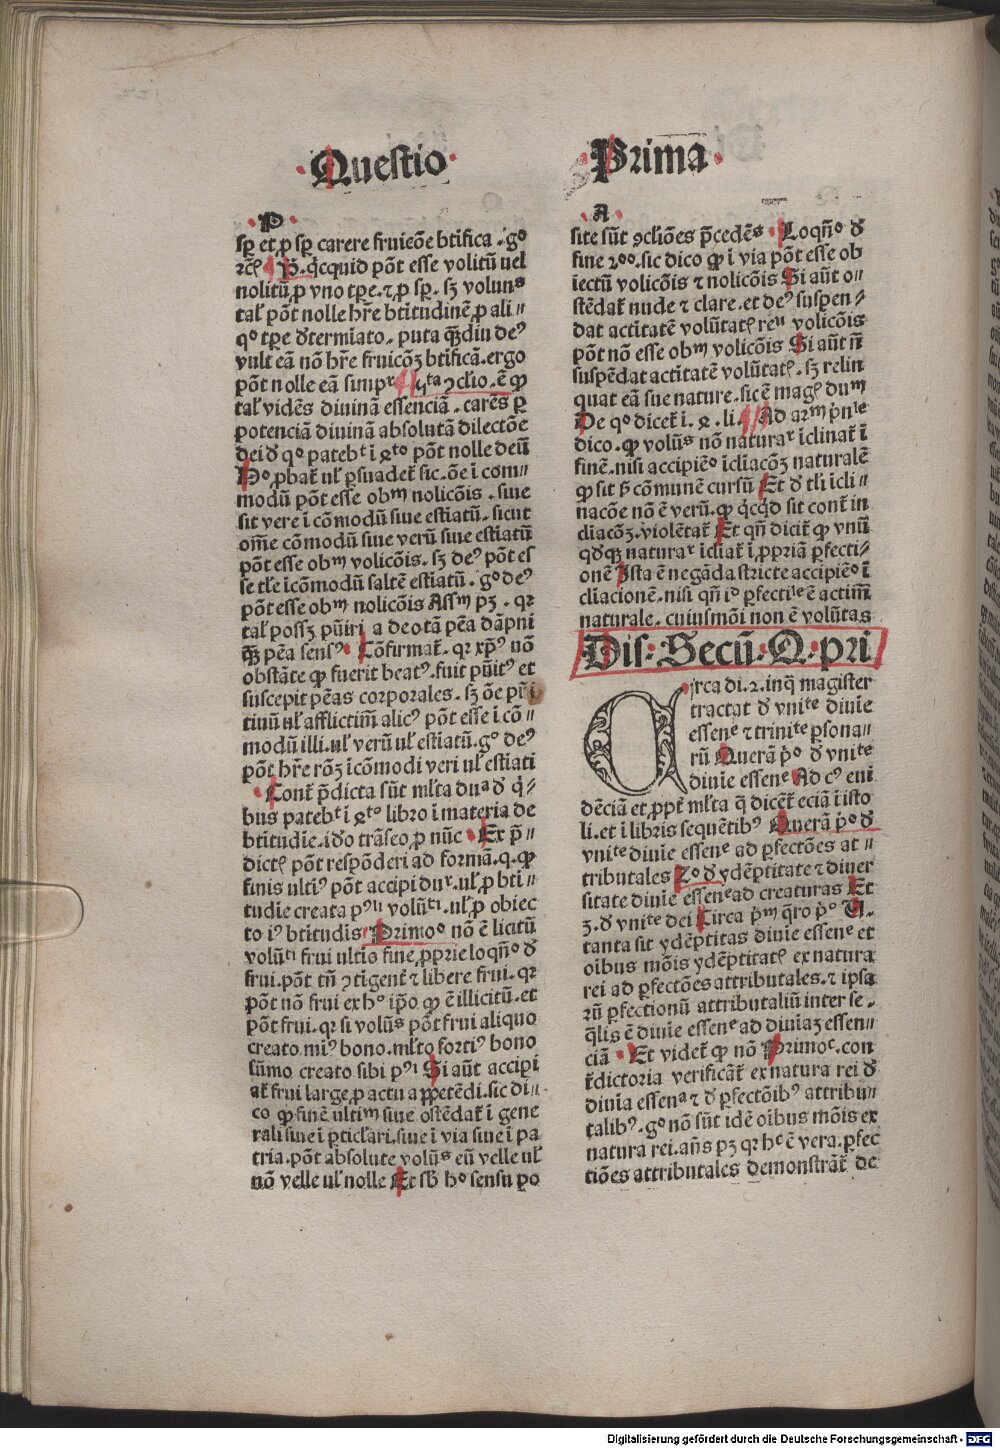 Questio
Prima
P
sꝑ et ꝓ sꝑ carere fruicōe btifica . gº
rcē P̄. q̇cquid pōt esse volitū vel
nolitū ꝓ vno tꝑe . ⁊ ꝓ sꝑ . sꝫ voluns
tal̓ pōt nolle hr̄e btitudinē ꝓ ali
qº tꝑe ď̄termīato . puta q̄ꝫdiu deꝰ
vult eā nō hr̄e fruicōꝫ btificā . ergo
pōt nolle eā simpr ꝗta ꝯclio . ē ꝙ
tal̓ vidēs diuinā essenciā . carēs ꝑ
potenciā diuinā absolutā dilectōe
dei ď qº patebt ī ꝗto pōt nolle deū
Pº ꝓbat̄ ul̓ ꝑsuadet̄ sic . ōe ī com⸗
modū pōt esse obm nolicōis . siue
sit vere ī cōmodū siue estiatū . sicut
om̄e cōmodū siue verū siue estiatū
pōt esse obm volicōis . sꝫ deꝰ pōt es
se tl̓e īcōmodū saltē estiatū . gº deꝰ
pōt esse obm nolicōis Assm pꝫ . qr
tal̓ possꝫ pūiri a deo tā pēa dāpni
q̄ꝫ pēa sensꝰ . Cōfirmat̄ . qr xp̄ꝰ nō
obstāte ꝙ fuerit beatꝰ . fuit pūitꝰ et
suscepit pēas corporales . sꝫ ōe pri
tiuū ul̓ afflictiū alicꝰ pōt esse ī cō⸗
modū illi . ul̓ verū ul̓ estiatū . gº deꝰ
pōt hr̄e rōꝫ īcōmodi veri ul̓ estiati
Cont̄ p̄dicta sūt ml̓ta dua ď q̇⸗
bus patebt ī ꝗto libro ī materia de
btitudīe . iď̄o trāseo ꝓ nūc Ex p̄⸗
dictꝭ pōt respōderi ad formā . q . ꝙ
finis ultiꝰ pōt accipi dur . ul̓ ꝓ bti⸗
tudīe creata pꝰ volūti . ul̓ ꝓ obiec
to iꝰ btitudis Primoº nō ē licitū
volūti frui ultīo fine ꝓprie loqn̄º ď
frui . pōt tn̄ ꝯtigent̄ ⁊ libere frui . qr
pōt nō frui ex hº ip̄o ꝙ ē illicitū . et
pōt frui . qr si volūs pōt frui aliquo
creato . miꝰ bono . ml̓to fortiꝰ bono
sūmo creato sibi pi Si aūt accipi
at̄ frui large ꝓ actu apꝑetēdi . sic di⸗
co ꝙ finē ultim siue ostēdat̄ ī gene
rali siue ī ꝑticl̓ari . siue ī via siue ī pa
tria . pōt absolute volūs eū velle ul̓
nō velle ul̓ nolle Et sb̄ hº sensu po
A
site sūt ꝯclīōes p̄cedēs Loqn̄º ď
fine 2ºº . sic dico ꝙ ī via pōt esse ob
iectū volicōis ⁊ nolicōis Si aūt o⸗
stēdat̄ nude ⁊ clare . et deꝰ suspen⸗
dat actitatē volūtatꝭ reu volicōis
pōt nō esse obm volicōis Si aūt n̄
suspēdat actitatē volūtatꝭ . sꝫ relin
quat eā sue nature . sic ē magꝭ dum
De qº dicet̄ ī . ꝗ . li . Ad arm p̄nle
dico . ꝙ volūs nō naturar īclinat̄ ī
finē . nisi accipiēº īclīacōꝫ naturalē
ꝙ sit ẜ cōmunē cursū Et ď tl̓i īcli⸗
nacōe nō ē verū . ꝙ q̇cq̇d sit cont̄ in
clīacōꝫ . violētat̄ Et qn̄ dicit̄ ꝙ vnū
qďqꝫ naturar īcliat̄ ī ꝓpriā ꝑfecti⸗
onē Ista ē negāda stricte accipiēº ī
clīacionē . nisi qn̄ iº ꝑfectile ē actiū
naturale . cuiusmōi non ē volūtas
Dis : Secū . Q . pri
Circa di . 2 . inq̄ magister
tractat ď vnite diuīe
essene ⁊ trinite ꝑsona⸗
rū Querā p̄º ď vnite
diuīe essene Ad cꝰ eui
dēciā et ꝓpt̄ ml̓ta q̄ dicēt̄ eciā ī isto
li . et ī libris sequētibꝰ Querā p̄º ď
vnite diuīe essene ad ꝑfectōes at⸗
tributales 2º ď ydēptitate ⁊ diuer
sitate diuīe essene ad creaturas Et
3 . ď vnite dei Circa p̄m q̄ro p̄º Ū .
tanta sit ydēptitas diuīe essene et
oībus mōis ydēptitatꝭ ex natura
rei ad ꝑfectōes attributales . ⁊ ipsa
rū ꝑfectionū attributaliū inter se .
q̄lis ē diuīe essene ad diuīaꝫ essen⸗
ciā Et videt̄ ꝙ nō Primoc . con
t̄dictoria verificāt̄ ex natura rei ď
diuīa essena ⁊ ď ꝑfectōibꝰ attribu⸗
talibꝰ . gº nō sūt idē oībus mōis ex
natura rei . an̄s pꝫ qr hc ē vera . ꝑfec
tiōes attributales demonstrāt̄ de
Digitalisierung gefördert durch die Deutsche Forschungsgemeinschaft - DFG